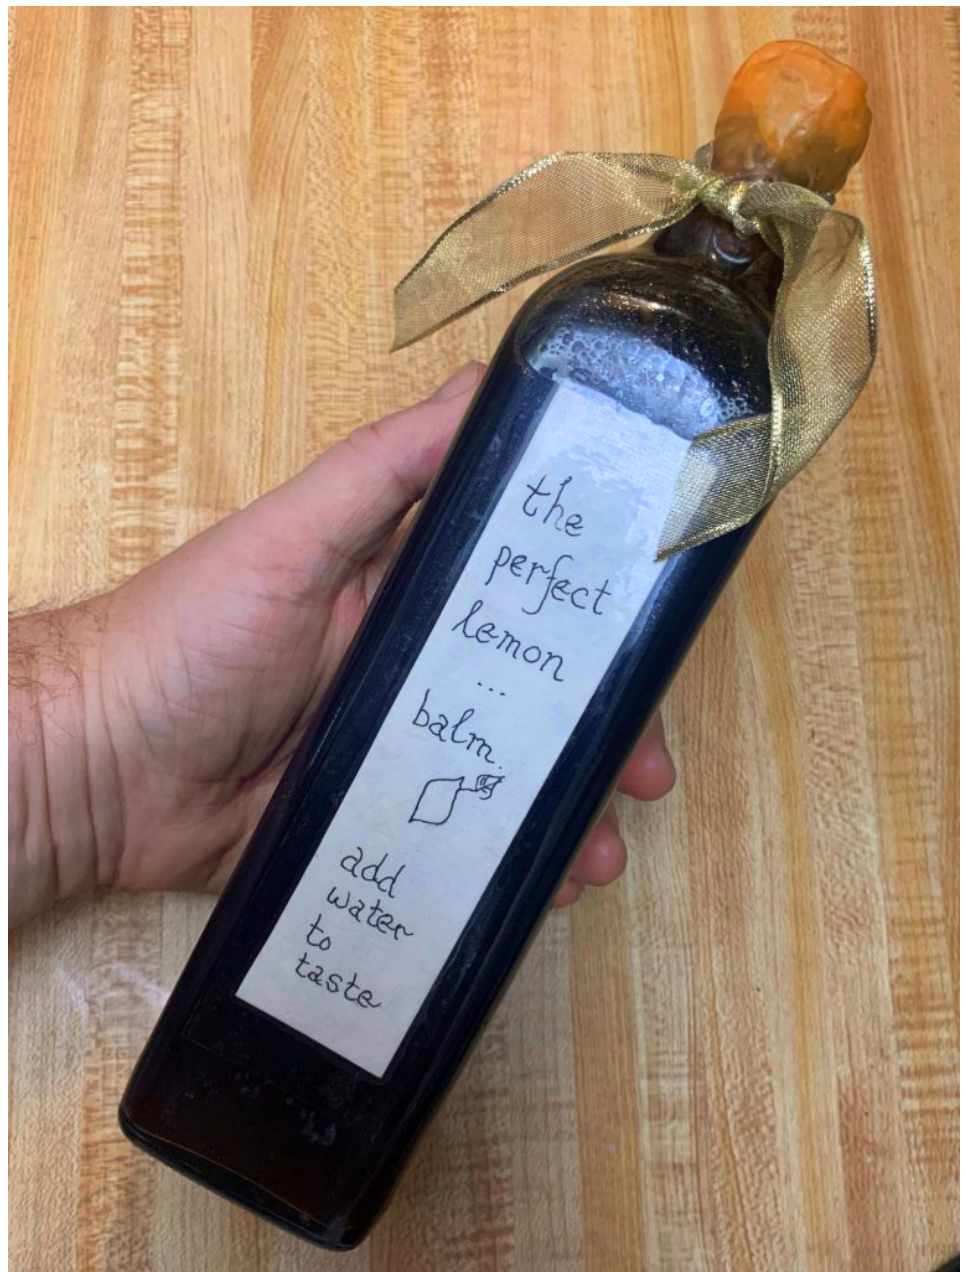 the
perfect
lemon
...
balm.
add
water
to
taste